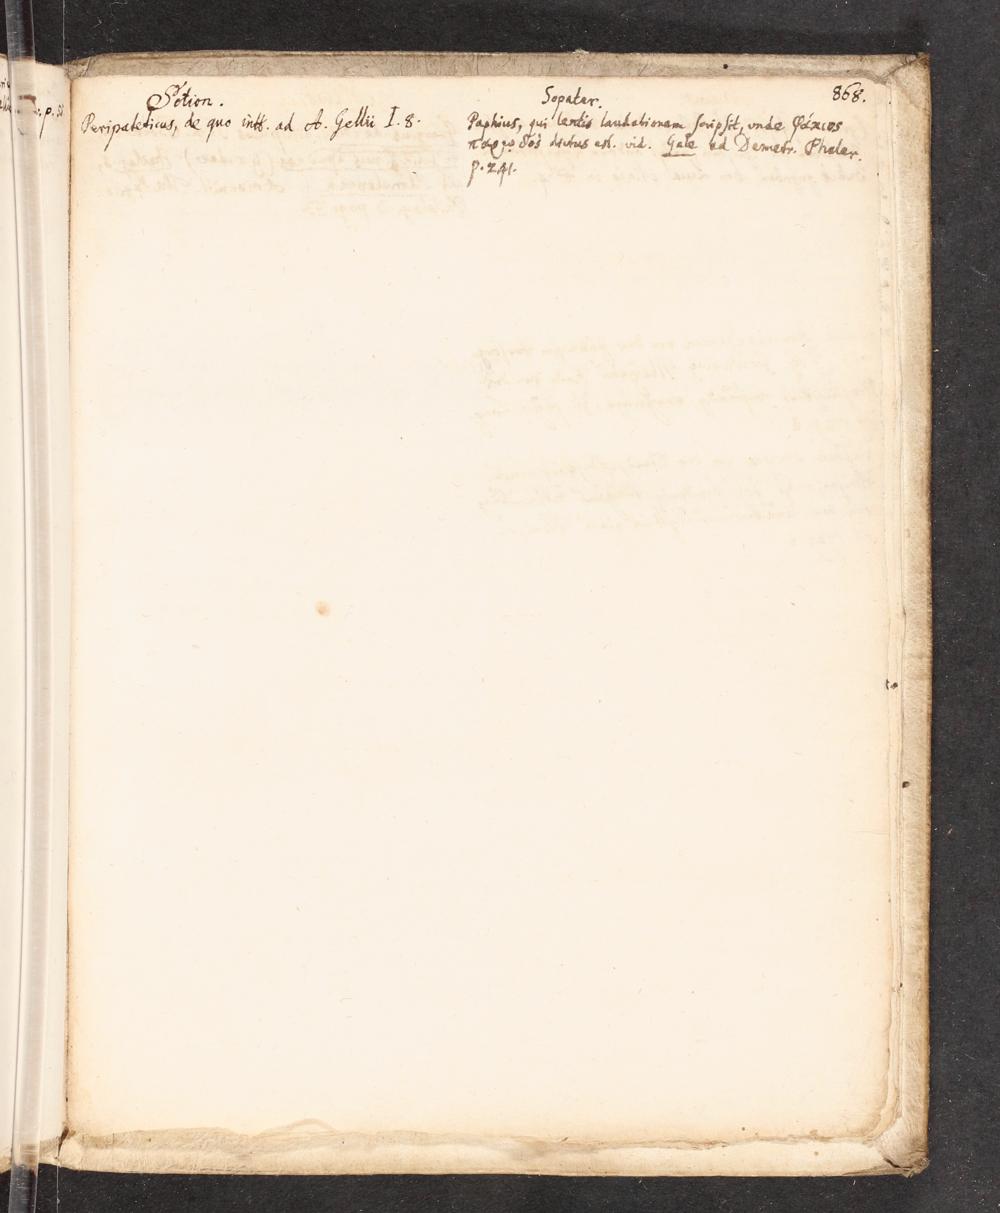 868.
Sotion.
Peripateticus, de quo intt. ad A. Gellii I. 8.
Sopater.
Paphius, qui lentis laudationem scripsit, unde Φάκιος
παρῳδὸς dictus est. vid. Gale ad Demetr. Phaler.
p. 241.